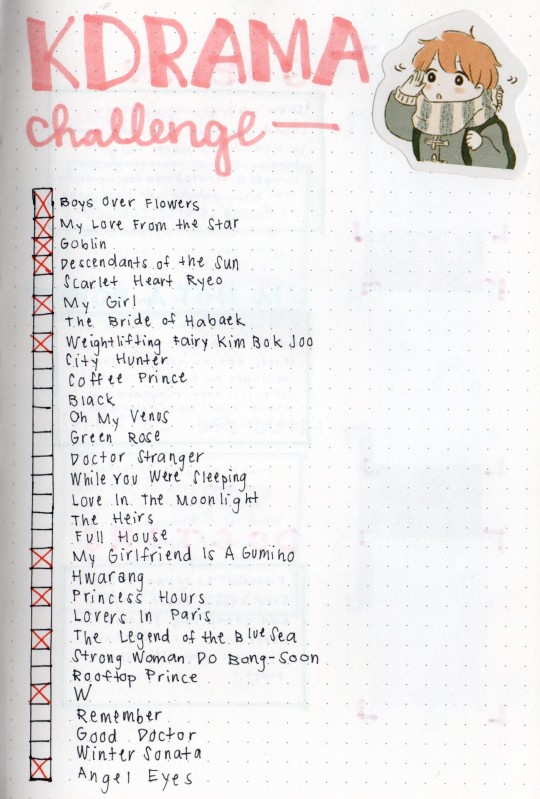 KDRAMA
challenge
Boys Over Flowers
My Love From the Star
Goblin
Descendants of the Sun
Scarlet Heart Ryeo
My Girl
The Bride of Habaek
Weightlifting Fairy Kim Bok Joo
City Hunter
Coffee Prince
Black
Oh My Venus
Green Rose
Doctor Stranger
While You Were Sleeping
Love In The Moonlight
The Heirs
Full House
My Girlfriend Is A Gumiho
Hwarang
Princess Hours
Lovers In Paris
The Legend of the Blue Sea
Strong Woman Do Bong-Soon
Rooftop Prince
W
Remember
Good Doctor
Winter Sonata
Angel Eyes